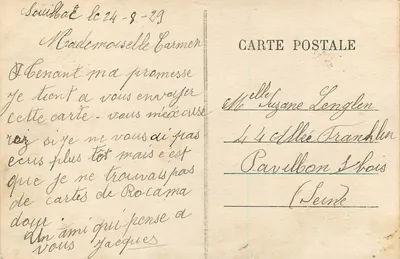 Souillac le 24-8-29
Mademoiselle Carmen
Tenant ma promesse
je tient a vous envoyer
cette carte - vous m'excuse
rez si je ne vous ai pas
ecris plus tot mais c'est
que je ne trouvais pas
de cartes de Rocama
dour.
Un ami qui pense a
vous Jacques
CARTE POSTALE
Melle Suzane Lenglen
44 Allée Franklin
Pavillon s bois
(Seine)